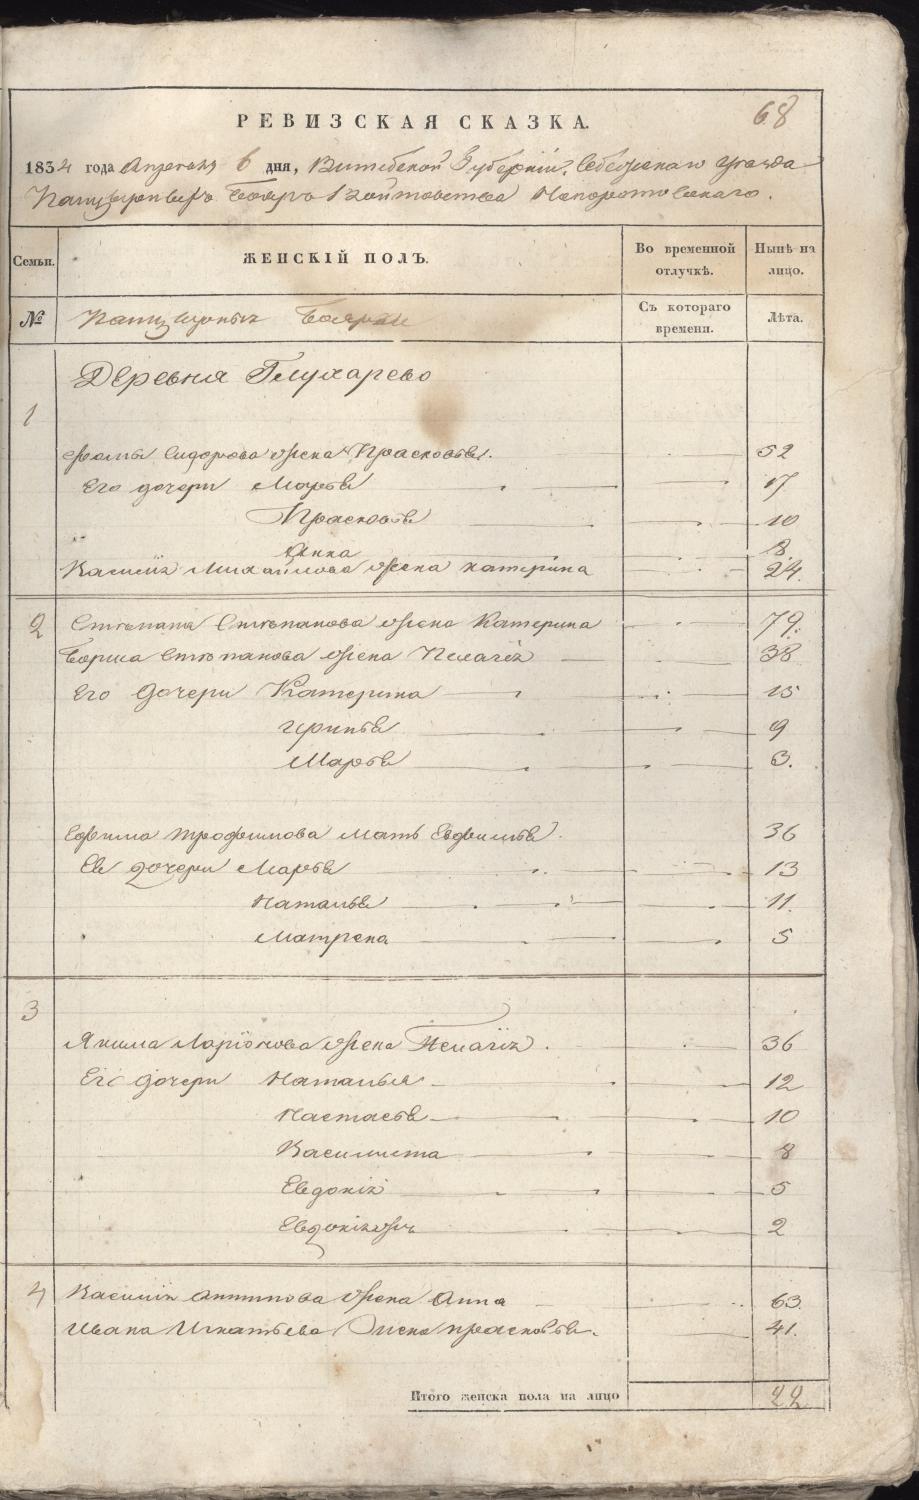 68
РЕВИЗСКАЯ СКАЗКА.
1834 года Апреля 6 дня, Витебской Губерніи, Себежскаго уезда
Панцырныхъ Бояръ Войтовства Непоротовскаго.
Семьи. ЖЕНСКІЙ ПОЛЪ. Во временной отлучкѣ. Нынѣ на лицо.
№ Панцырныхъ Бояръ Съ котораго времени. Лѣта.
Деревня Глухарево
1
Фомы Сидорова жена Прасковья. 52
Его дочери Марья 17
Прасковья 10
Анна 8
Василія Михайлова жена Катерина 24.
2 Степана Степанова жена Катерина 79.
Бориса Степанова жена Пелагія 38
Его дочери Катерина 15
Иринья 9
Марья 3.
Ефима Трофимова мать Евфимья. 36
Ея дочери Марья 13
Наталья 11.
Матрена 5
3
Якима Ларіонова жена Пелагія. 36
Его дочери Наталья 12
Настасья 10
Василиста 8
Евдокія 5
Евдокія жъ 2
4 Василія Антипова жена Анна 63.
Ивана Игнатьева жена Прасковья. 41.
Итого женска пола на лицо 22